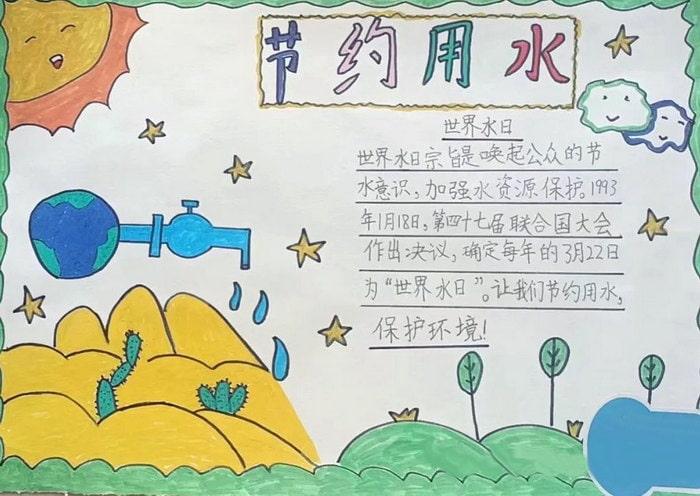 节约用水
世界水日
世界水日宗旨是唤起公众的节
水意识，加强水资源保护。1993
年1月18日，第四十七届联合国大会
作出决议，确定每年的3月22日
为“世界水日”。让我们节约用水，
保护环境！